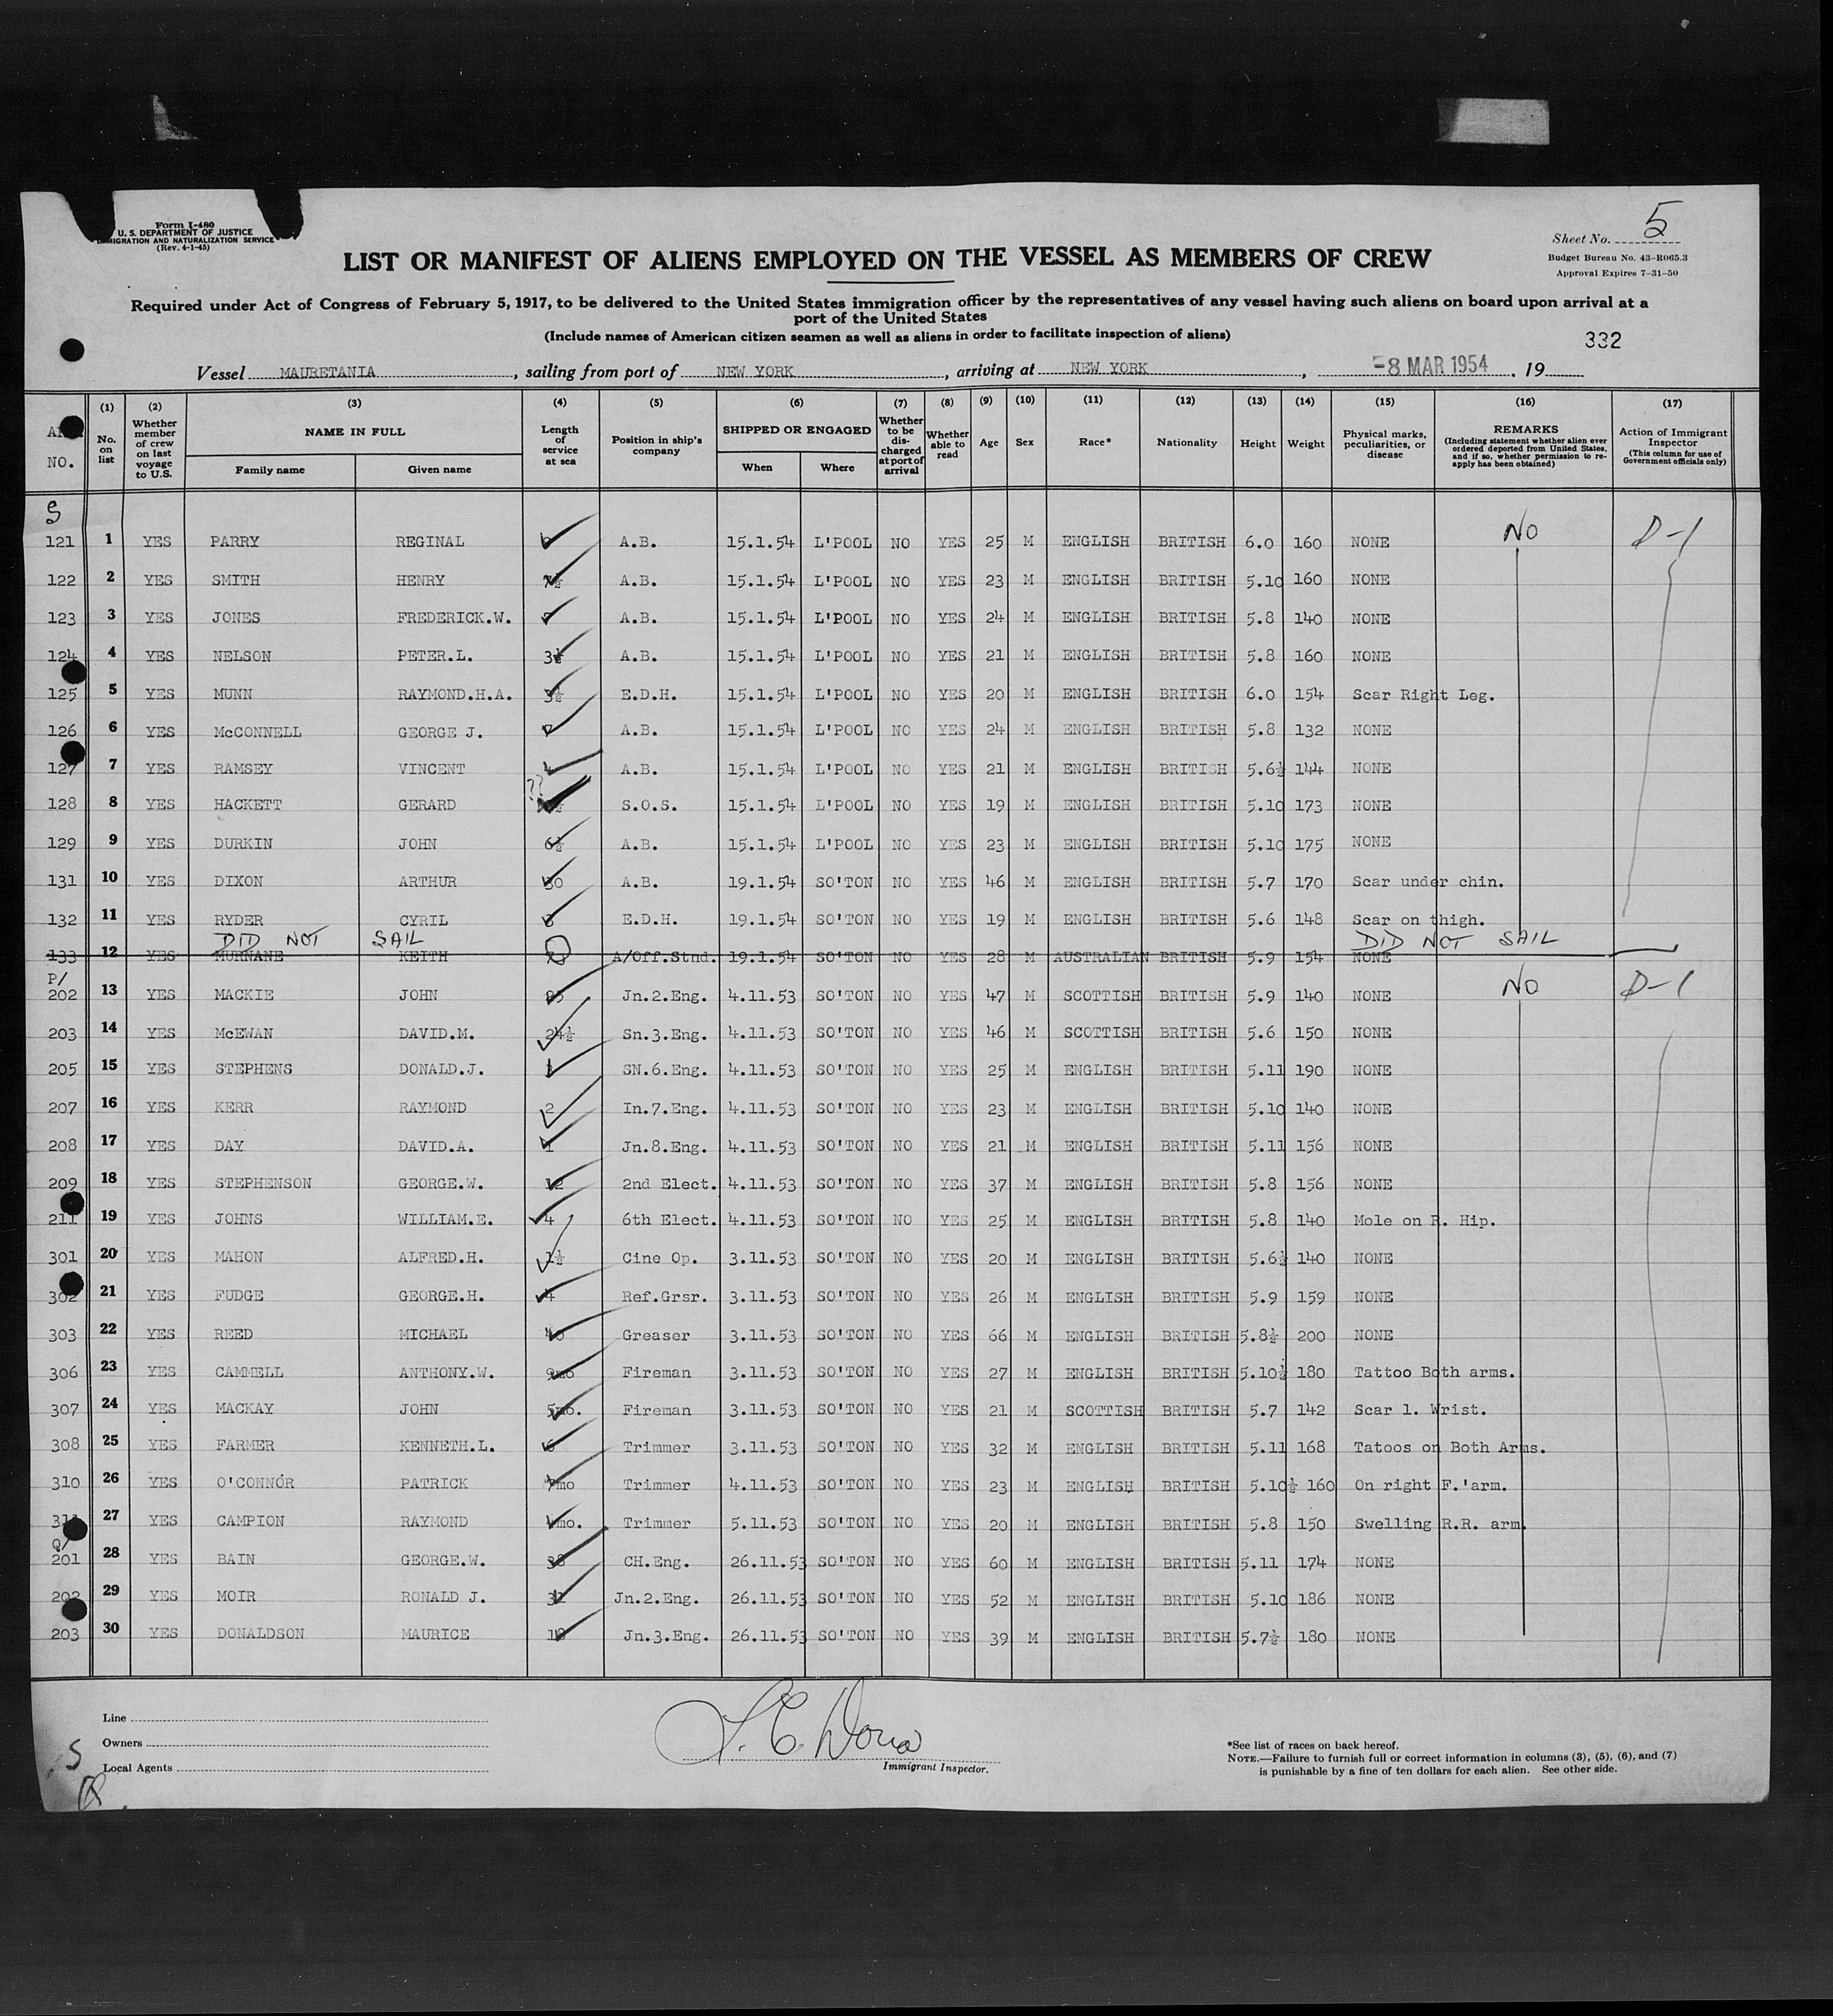 Form I-480
U. S. DEPARTMENT OF JUSTICE
IMMIGRATION AND NATURALIZATION SERVICE
(Rev. 4-1-45)
Sheet No. 5
Budget Bureau No. 43-R065.3
Approval Expires 7-31-50
LIST OR MANIFEST OF ALIENS EMPLOYED ON THE VESSEL AS MEMBERS OF CREW
Required under Act of Congress of February 5, 1917, to be delivered to the United States immigration officer by the representatives of any vessel having such aliens on board upon arrival at a
port of the United States
(Include names of American citizen seamen as well as aliens in order to facilitate inspection of aliens)
332
Vessel MAURETANIA, sailing from port of NEW YORK, arriving at NEW YORK, -8 MAR 1954, 19
NO.
(1) No. on list
(2) Whether member of crew on last voyage to U.S.
(3) NAME IN FULL Family name Given name
(4) Length of service at sea
(5) Position in ship's company
(6) SHIPPED OR ENGAGED When Where
(7) Whether to be discharged at port of arrival
(8) Whether able to read
(9) Age
(10) Sex
(11) Race*
(12) Nationality
(13) Height
(14) Weight
(15) Physical marks, peculiarities, or disease
(16) REMARKS (Including statement whether alien ever ordered deported from United States, and if so, whether permission to re-apply has been obtained)
(17) Action of Immigrant Inspector (This column for use of Government officials only)
S
121 1 YES PARRY REGINAL A.B. 15.1.54 L'POOL NO YES 25 M ENGLISH BRITISH 6.0 160 NONE NO D-1
122 2 YES SMITH HENRY 7½ A.B. 15.1.54 L'POOL NO YES 23 M ENGLISH BRITISH 5.10 160 NONE
123 3 YES JONES FREDERICK.W. 7 A.B. 15.1.54 L'POOL NO YES 24 M ENGLISH BRITISH 5.8 140 NONE
124 4 YES NELSON PETER.L. 3½ A.B. 15.1.54 L'POOL NO YES 21 M ENGLISH BRITISH 5.8 160 NONE
125 5 YES MUNN RAYMOND.H.A. 3½ E.D.H. 15.1.54 L'POOL NO YES 20 M ENGLISH BRITISH 6.0 154 Scar Right Leg.
126 6 YES McCONNELL GEORGE J. 7 A.B. 15.1.54 L'POOL NO YES 24 M ENGLISH BRITISH 5.8 132 NONE
127 7 YES RAMSEY VINCENT 4 A.B. 15.1.54 L'POOL NO YES 21 M ENGLISH BRITISH 5.6½ 144 NONE
128 8 YES HACKETT GERARD ?? S.O.S. 15.1.54 L'POOL NO YES 19 M ENGLISH BRITISH 5.10 173 NONE
129 9 YES DURKIN JOHN 6½ A.B. 15.1.54 L'POOL NO YES 23 M ENGLISH BRITISH 5.10 175 NONE
131 10 YES DIXON ARTHUR 30 A.B. 19.1.54 SO'TON NO YES 46 M ENGLISH BRITISH 5.7 170 Scar under chin.
132 11 YES RYDER CYRIL 3 E.D.H. 19.1.54 SO'TON NO YES 19 M ENGLISH BRITISH 5.6 148 Scar on thigh.
DID NOT SAIL DID NOT SAIL
133 12 YES MURNANE KEITH A/Off.Stnd. 19.1.54 SO'TON NO YES 28 M AUSTRALIAN BRITISH 5.9 154 NONE
P/
202 13 YES MACKIE JOHN 25 Jn.2.Eng. 4.11.53 SO'TON NO YES 47 M SCOTTISH BRITISH 5.9 140 NONE NO D-1
203 14 YES McEWAN DAVID.M. 24½ Sn.3.Eng. 4.11.53 SO'TON NO YES 46 M SCOTTISH BRITISH 5.6 150 NONE
205 15 YES STEPHENS DONALD.J. SN.6.Eng. 4.11.53 SO'TON NO YES 25 M ENGLISH BRITISH 5.11 190 NONE
207 16 YES KERR RAYMOND 2 In.7.Eng. 4.11.53 SO'TON NO YES 23 M ENGLISH BRITISH 5.10 140 NONE
208 17 YES DAY DAVID.A. 1 Jn.8.Eng. 4.11.53 SO'TON NO YES 21 M ENGLISH BRITISH 5.11 156 NONE
209 18 YES STEPHENSON GEORGE.W. 12 2nd Elect. 4.11.53 SO'TON NO YES 37 M ENGLISH BRITISH 5.8 156 NONE
211 19 YES JOHNS WILLIAM.E. 4 6th Elect. 4.11.53 SO'TON NO YES 25 M ENGLISH BRITISH 5.8 140 Mole on R. Hip.
301 20 YES MAHON ALFRED.H. 1½ Cine Op. 3.11.53 SO'TON NO YES 20 M ENGLISH BRITISH 5.6½ 140 NONE
302 21 YES FUDGE GEORGE.H. 4 Ref.Grsr. 3.11.53 SO'TON NO YES 26 M ENGLISH BRITISH 5.9 159 NONE
303 22 YES REED MICHAEL Greaser 3.11.53 SO'TON NO YES 66 M ENGLISH BRITISH 5.8½ 200 NONE
306 23 YES CAMMELL ANTHONY.W. 9mo Fireman 3.11.53 SO'TON NO YES 27 M ENGLISH BRITISH 5.10½ 180 Tattoo Both arms.
307 24 YES MACKAY JOHN 5mo. Fireman 3.11.53 SO'TON NO YES 21 M SCOTTISH BRITISH 5.7 142 Scar l. Wrist.
308 25 YES FARMER KENNETH.L. 6 Trimmer 3.11.53 SO'TON NO YES 32 M ENGLISH BRITISH 5.11 168 Tatoos on Both Arms.
310 26 YES O'CONNOR PATRICK 7mo Trimmer 4.11.53 SO'TON NO YES 23 M ENGLISH BRITISH 5.10½ 160 On right F.'arm.
311 27 YES CAMPION RAYMOND 4mo. Trimmer 5.11.53 SO'TON NO YES 20 M ENGLISH BRITISH 5.8 150 Swelling R.R. arm.
Q/
201 28 YES BAIN GEORGE.W. 38 CH.Eng. 26.11.53 SO'TON NO YES 60 M ENGLISH BRITISH 5.11 174 NONE
202 29 YES MOIR RONALD J. 31 Jn.2.Eng. 26.11.53 SO'TON NO YES 52 M ENGLISH BRITISH 5.10 186 NONE
203 30 YES DONALDSON MAURICE 18 Jn.3.Eng. 26.11.53 SO'TON NO YES 39 M ENGLISH BRITISH 5.7½ 180 NONE
Line
Owners
Local Agents
S
Immigrant Inspector.
*See list of races on back hereof.
NOTE.—Failure to furnish full or correct information in columns (3), (5), (6), and (7)
is punishable by a fine of ten dollars for each alien. See other side.